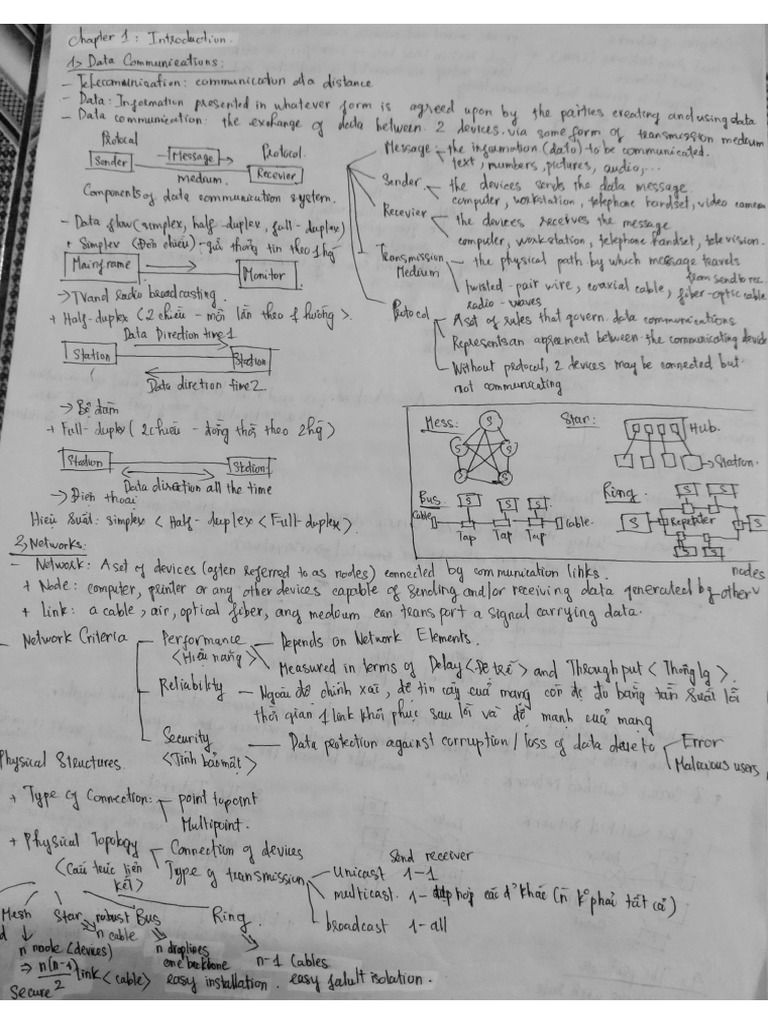 Chapter 1: Introduction.
1> Data Communications:
- Telecommunication: communication at a distance
- Data: Information presented in whatever form is agreed upon by the parties creating and using data
- Data communication: the exchange of data between 2 devices via some form of transmission medium
Protocal
Protocol.
Sender
Message
Recevier
medium.
Components of data communication system.
Message - the information (data) to be communicated.
text, numbers, pictures, audio,...
Sender - the devices sends the data message
computer, workstation, telephone handset, video camera
Recevier - the devices receives the message
computer, workstation, telephone handset, television.
Transmission Medium - the physical path by which message travels
from send to rec
twisted-pair wire, coaxial cable, fiber-optic cable
radio-waves
Protocol - A set of rules that govern data communications
Represents an agreement between the communicating device
Without protocol, 2 devices may be connected but
not communicating
- Data flow (simplex, half-duplex, full-duplex)
+ Simplex (Đơn chiều) - gửi thông tin theo 1 hg
Mainframe
Monitor
-> TV and Radio broadcasting.
+ Half-duplex <2 chiều - mỗi lần theo 1 hướng>.
Data Direction time 1
Station
Station
Data diretion time 2
-> Bộ đàm
+ Full-duplex (2 chiều - đồng thời theo 2 hg)
Station
Station
Data direction all the time
-> Điện thoại
Hiệu suất: simplex < Half-duplex < Full-duplex>.
Mess:
S
S
S
S
S
Star:
Hub.
Station.
Bus
Cable
S
S
S
Tap
Tap
Tap
Cable.
Ring.
S
S
S
Repeater
S
S
S
2, Networks:
- Network: A set of devices (often referred to as nodes) connected by communication links.
+ Node: computer, printer or any other devices capable of sending and/or receiving data generated by other nodes
+ Link: a cable, air, optical fiber, any medium can transport a signal carrying data.
- Network Criteria
Performance <Hiệu năng>
Depends on Network Elements.
Measured in terms of Delay <Độ trễ> and Throughput <Thông lg>.
Reliability - Ngoài độ chính xác, độ tin cậy của mạng còn đc đo bằng tần suất lỗi
thời gian 1 link khôi phục sau lỗi và độ mạnh của mạng
Security <Tính bảo mật> - Data protection against corruption/loss of data due to
Error
Malicious users
Physical Structures
+ Type of Connection:
point to point
Multipoint.
+ Physical Topology
<Cấu trúc liên kết>
Connection of devices
Type of transmission
Send receiver
Unicast 1-1
multicast. 1 -
broadcast 1-all
Mesh
Star
robust
Bus
Ring.
n node (devices)
n cable
n droplines
one backbone
n-1 Cables
=> n(n-1)/2 link <cable>
easy installation.
easy fault isolation.
Secure